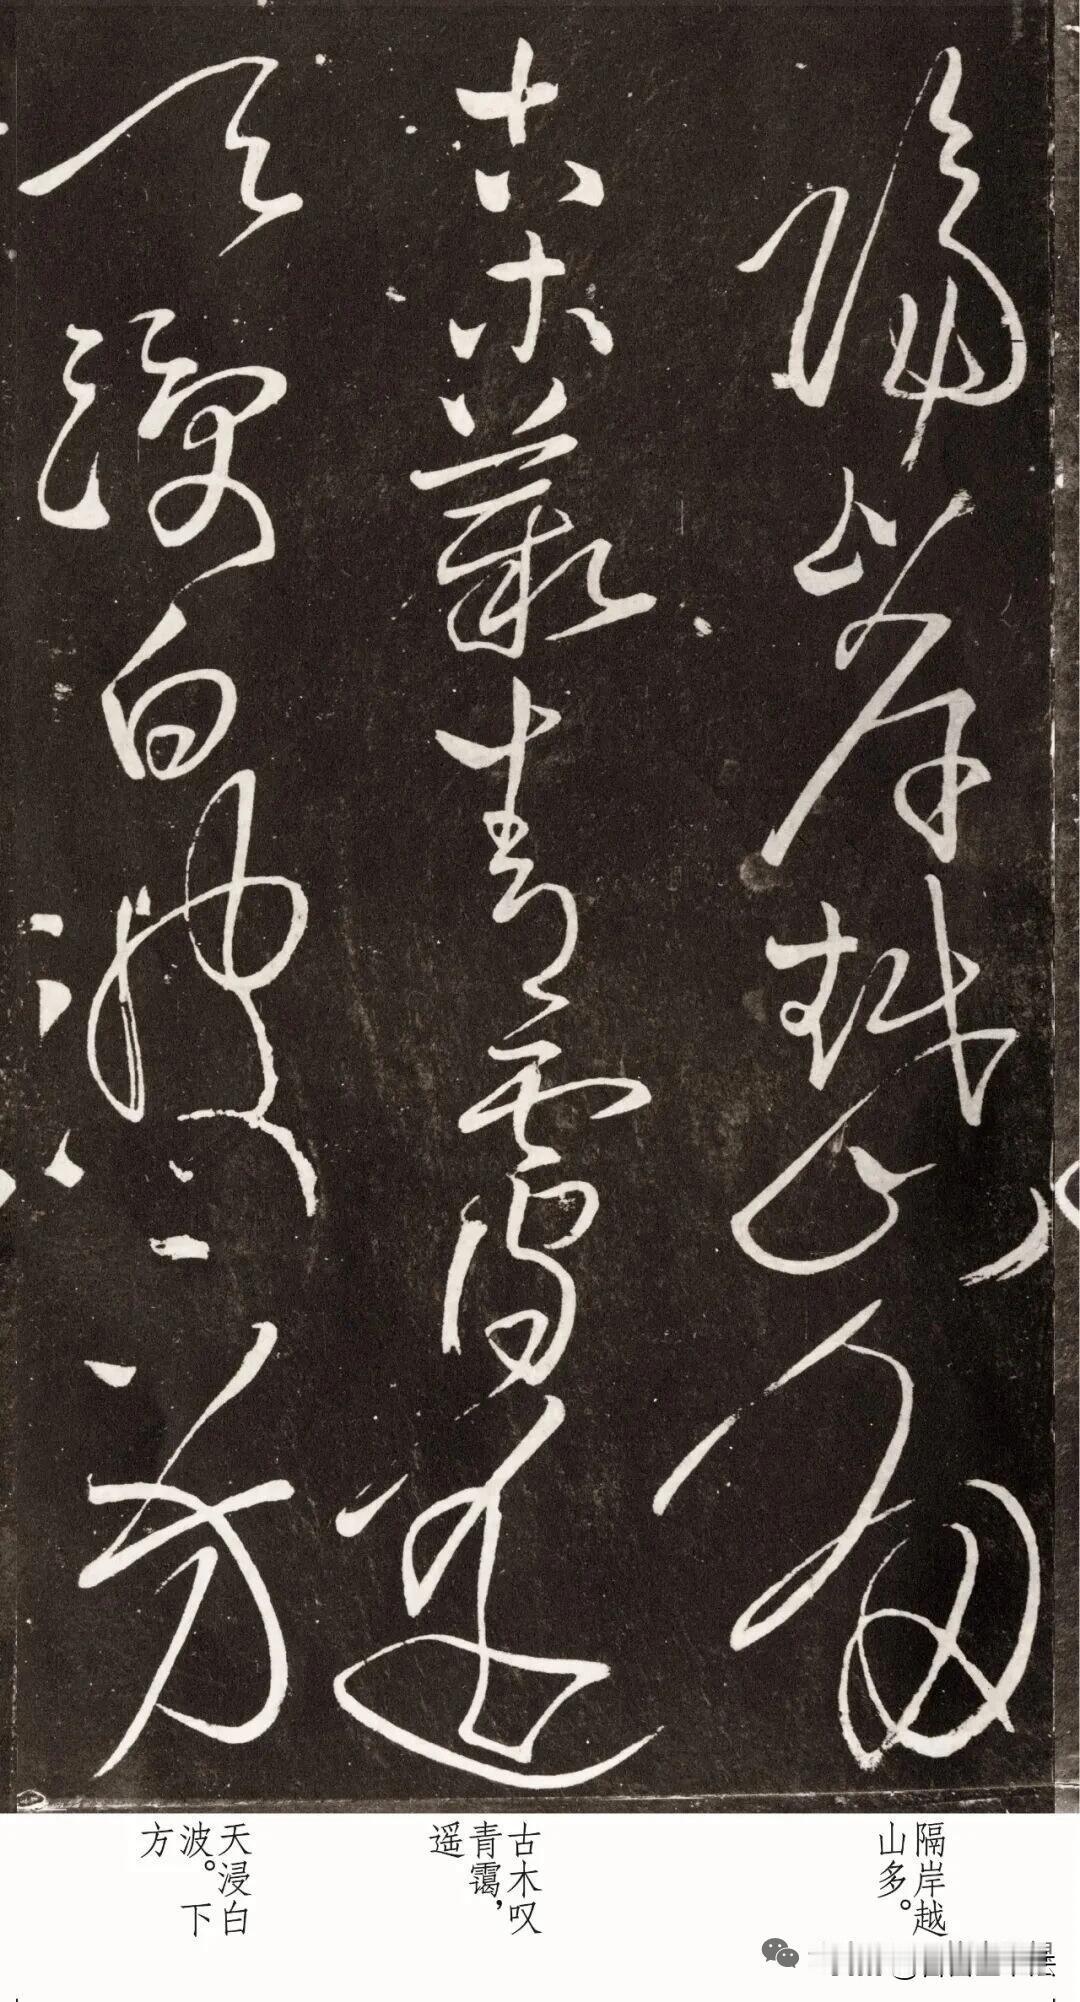 隔岸越山多
古木叢青靄遥
天浸白波下方
隔岸越
山多。
古木叹
青霭，
遥
天浸白
波。下
方